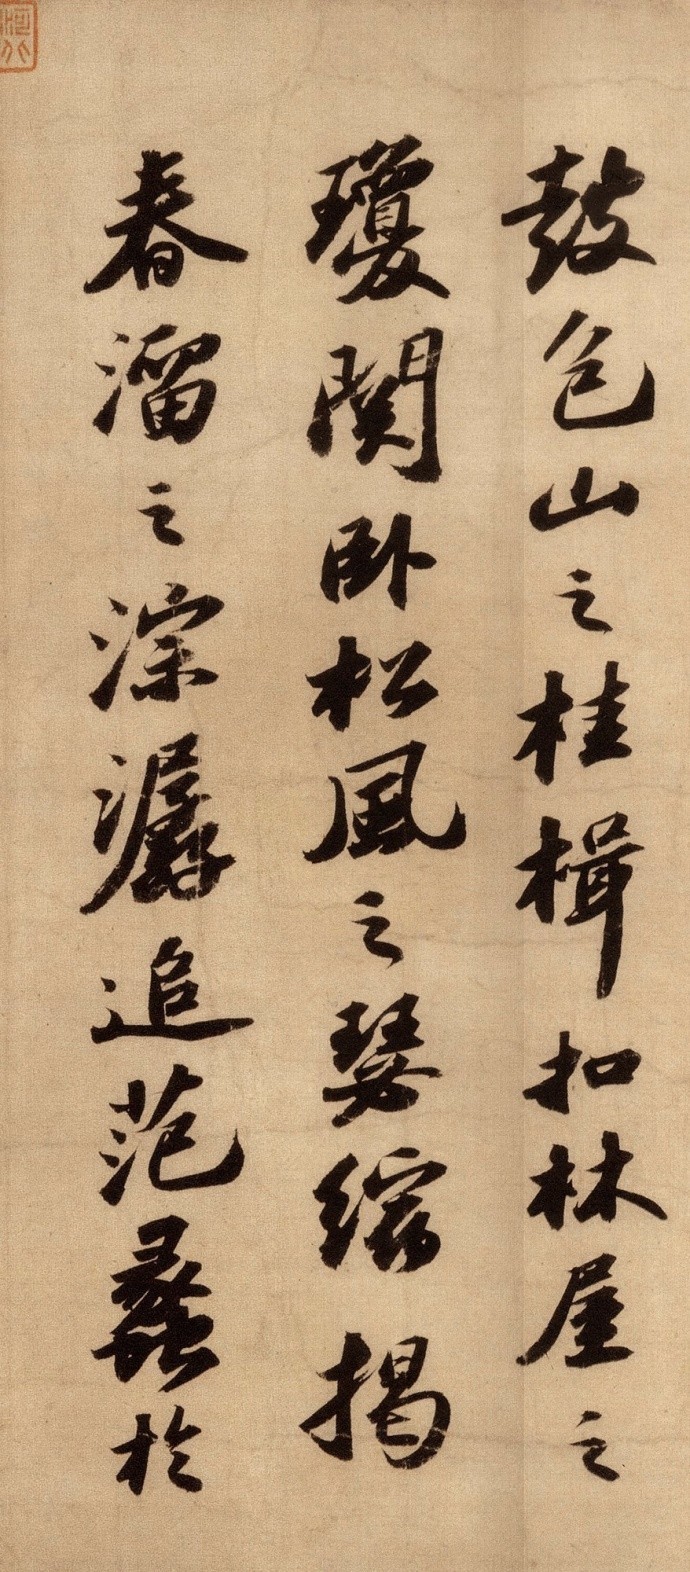 鼓包山之桂楫扣林屋之
瓊関卧松風之瑟縮揭
春溜之淙潺追范蠡於